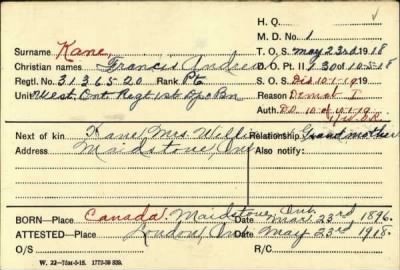 H. Q.
M. D. No. 1
Surname Kane T. O. S. May 23rd 1918
Christian names Francis Andrew D. O. Pt. II 130 of 10-5-18
Regtl. No. 3136520 Rank Pte S. O. S. Dis 10-1-1919
Unit West. Ont Regt 1st Dpo Bn Reason Demob I.
Auth. D.D. 10 of 10-1-19
Next of kin Kane, Mrs. Relationship Grandmother
Address Maidstone, Ont Also notify:
BORN—Place Canada, Maidstone, Ont. Date Mar. 23rd, 1896.
ATTESTED—Place London, Ont. Date May 23rd 1918.
O/S R/C